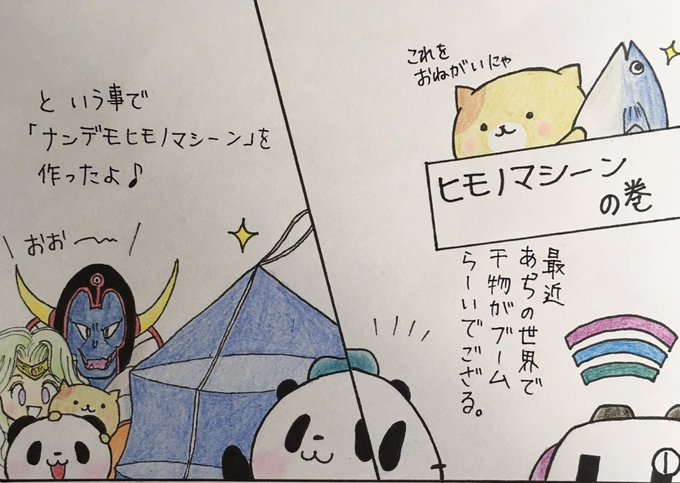 これを
おねがいにゃ
ヒモノマシーン
の巻
最近
あちの世界で
干物がブーム
らーいでござる。
①
という事で
「ナンデモヒモノマシーン」を
作ったよ♪
おお〜〜